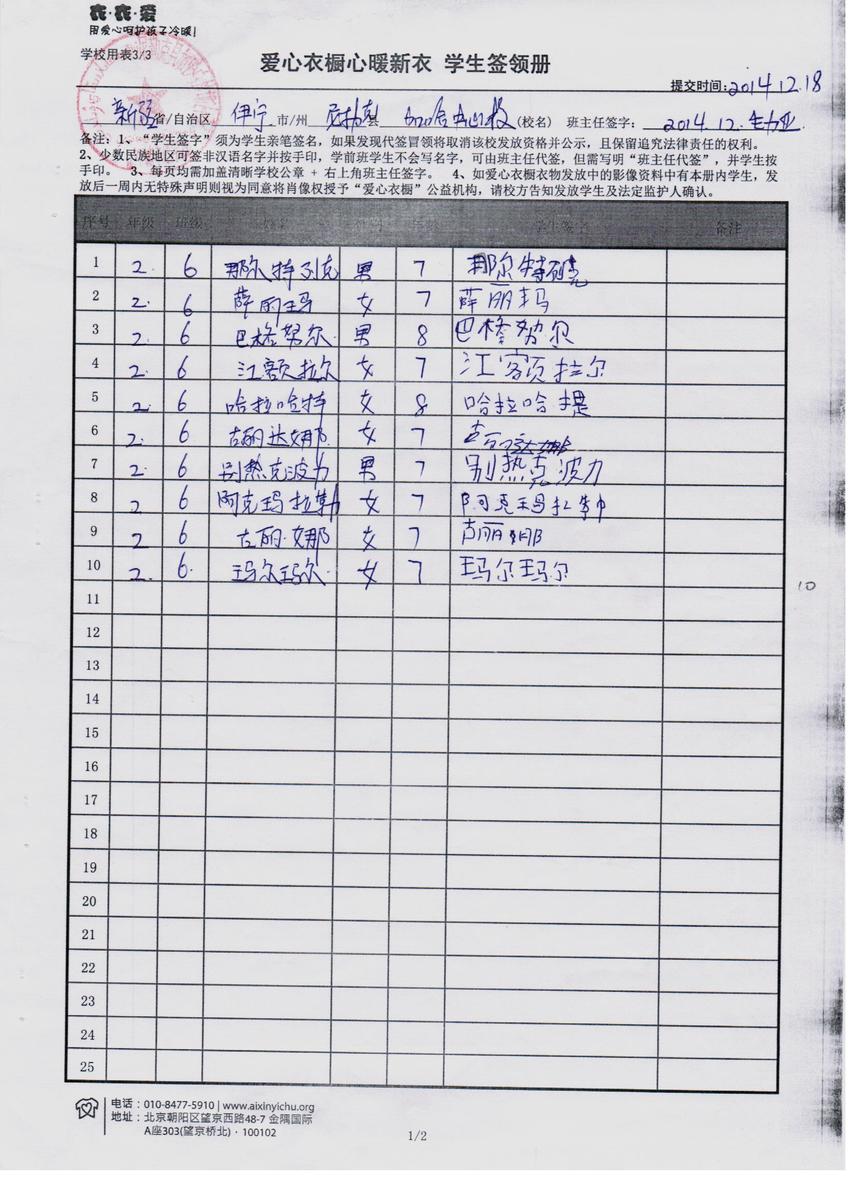 衣·衣·爱
用爱心呵护孩子冷暖!
学校用表3/3
爱心衣橱心暖新衣 学生签领册
提交时间:2014.12.18
新疆省/自治区 伊宁市/州 尼勒克县 加哈中心校(校名) 班主任签字: 2014.12.
备注:1、“学生签字”须为学生亲笔签名,如果发现代签冒领将取消该校发放资格并公示,且保留追究法律责任的权利。
2、少数民族地区可签非汉语名字并按手印,学前班学生不会写名字,可由班主任代签,但需写明“班主任代签”,并学生按
手印。 3、每页均需加盖清晰学校公章 + 右上角班主任签字。 4、如爱心衣橱衣物发放中的影像资料中有本册内学生,发
放后一周内无特殊声明则视为同意将肖像权授予“爱心衣橱”公益机构,请校方告知发放学生及法定监护人确认。
序号 年级 班级 姓名 性别 年龄 学生签字 备注
1 2. 6 那尔特列克 男 7 那尔特
2 2. 6 薛丽玛 女 7 薛丽玛
3 2. 6 巴格努尔 男 8 巴格努尔
4 2. 6 江额拉尔 女 7 江额拉尔
5 2. 6 哈拉哈特 女 8 哈拉哈提
6 2. 6 古丽达娜 女 7 古丽达娜
7 2. 6 别热克波力 男 7 别热克波力
8 2 6 阿克玛拉勒 女 7 阿克玛拉
9 2 6 古丽·娜 女 7 古丽娜
10 2. 6. 玛尔玛尔 女 7 玛尔玛尔
11
10
12
13
14
15
16
17
18
19
20
21
22
23
24
25
电话:010-8477-5910 | www.aixinyichu.org
地址:北京朝阳区望京西路48-7 金隅国际
A座303(望京桥北)· 100102
1/2